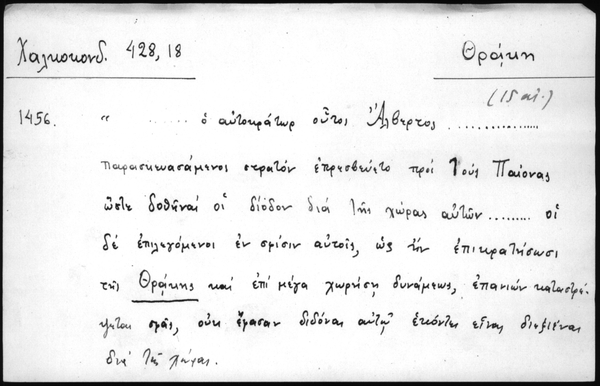 Χαλκοκονδ. 428,18 Θράκη
(15 αἰ.)
1456. " ...... ὁ αὐτοκράτωρ οὗτος Ἀλβέρτος ................
παρασκευασάμενος στρατόν ἐπρεσβεύετο πρός τούς Παίονας
ὥστε δοθῆναί οἱ δίοδον διά τῆς χώρας αὐτῶν ......... οἱ
δέ ἐπιλεγόμενοι ἐν σφίσιν αὐτοῖς, ὡς ἤν ἐπικρατήσωσι
τῆς Θράκης καί ἐπί μέγα χωρήσῃ δυνάμεως, ἐπανιών καταστρέ-
ψεται σφᾶς, οὐκ ἔφασαν διδόναι αὐτῷ ἑκόντες εἶναι διεξιέναι
διά τῆς χώρας.